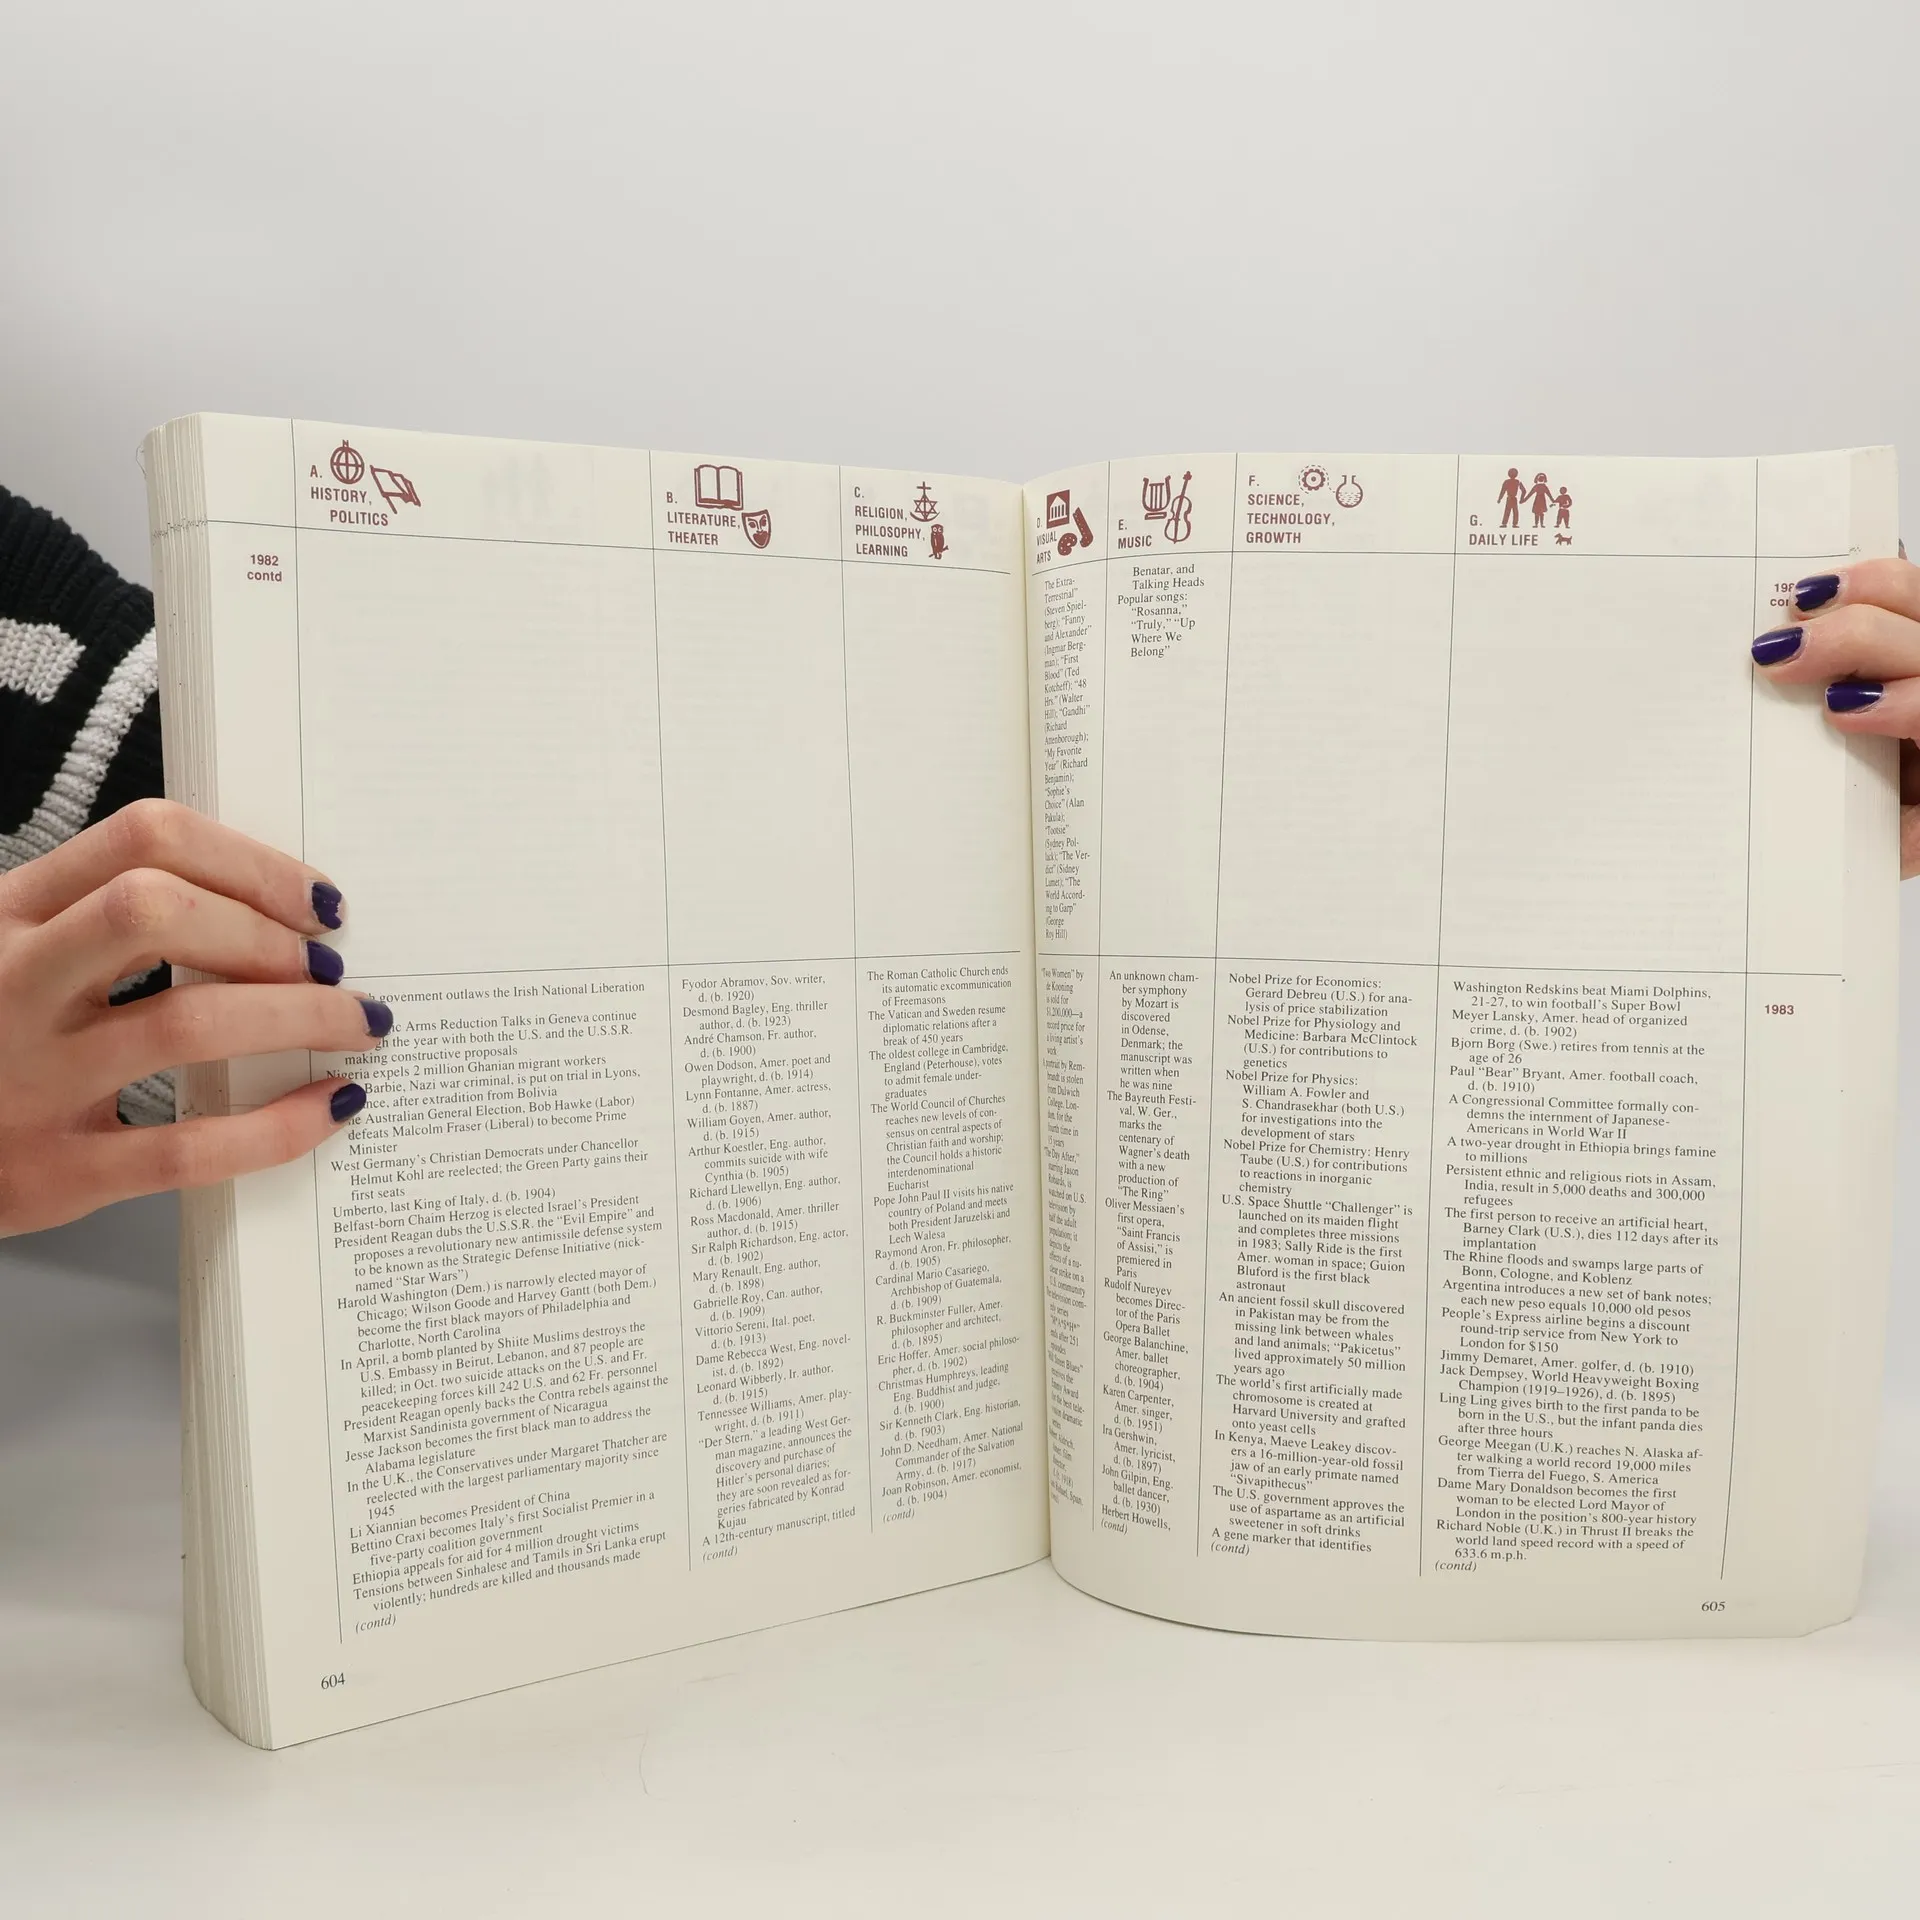 A.
HISTORY,
POLITICS
B.
LITERATURE,
THEATER
C.
RELIGION,
PHILOSOPHY,
LEARNING
1982
contd
govenment outlaws the Irish National Liberation
Arms Reduction Talks in Geneva continue
the year with both the U.S. and the U.S.S.R.
making constructive proposals
Nigeria expels 2 million Ghanian migrant workers
Barbie, Nazi war criminal, is put on trial in Lyons,
after extradition from Bolivia
Australian General Election, Bob Hawke (Labor)
defeats Malcolm Fraser (Liberal) to become Prime
Minister
West Germany's Christian Democrats under Chancellor
Helmut Kohl are reelected; the Green Party gains their
first seats
Umberto, last King of Italy, d. (b. 1904)
Belfast-born Chaim Herzog is elected Israel's President
President Reagan dubs the U.S.S.R. the "Evil Empire" and
proposes a revolutionary new antimissile defense system
to be known as the Strategic Defense Initiative (nick-
named "Star Wars")
Harold Washington (Dem.) is narrowly elected mayor of
Chicago; Wilson Goode and Harvey Gantt (both Dem.)
become the first black mayors of Philadelphia and
Charlotte, North Carolina
In April, a bomb planted by Shiite Muslims destroys the
U.S. Embassy in Beirut, Lebanon, and 87 people are
killed; in Oct. two suicide attacks on the U.S. and Fr.
peacekeeping forces kill 242 U.S. and 62 Fr. personnel
President Reagan openly backs the Contra rebels against the
Marxist Sandinista government of Nicaragua
Jesse Jackson becomes the first black man to address the
Alabama legislature
In the U.K., the Conservatives under Margaret Thatcher are
reelected with the largest parliamentary majority since
1945
Li Xiannian becomes President of China
Bettino Craxi becomes Italy's first Socialist Premier in a
five-party coalition government
Ethiopia appeals for aid for 4 million drought victims
Tensions between Sinhalese and Tamils in Sri Lanka erupt
violently; hundreds are killed and thousands made
(contd)
Fyodor Abramov, Sov. writer,
d. (b. 1920)
Desmond Bagley, Eng. thriller
author, d. (b. 1923)
André Chamson, Fr. author,
d. (b. 1900)
Owen Dodson, Amer. poet and
playwright, d. (b. 1914)
Lynn Fontanne, Amer. actress,
d. (b. 1887)
William Goyen, Amer. author,
d. (b. 1915)
Arthur Koestler, Eng. author,
commits suicide with wife
Cynthia (b. 1905)
Richard Llewellyn, Eng. author,
d. (b. 1906)
Ross Macdonald, Amer. thriller
author, d. (b. 1915)
Sir Ralph Richardson, Eng. actor,
d. (b. 1902)
Mary Renault, Eng. author,
d. (b. 1898)
Gabrielle Roy, Can. author,
d. (b. 1909)
Vittorio Sereni, Ital. poet,
d. (b. 1913)
Dame Rebecca West, Eng. novel-
ist, d. (b. 1892)
Leonard Wibberly, Ir. author,
d. (b. 1915)
Tennessee Williams, Amer. play-
wright, d. (b. 1911)
"Der Stern," a leading West Ger-
man magazine, announces the
discovery and purchase of
Hitler's personal diaries;
they are soon revealed as for-
geries fabricated by Konrad
Kujau
A 12th-century manuscript, titled
(contd)
The Roman Catholic Church ends
its automatic excommunication
of Freemasons
The Vatican and Sweden resume
diplomatic relations after a
break of 450 years
The oldest college in Cambridge,
England (Peterhouse), votes
to admit female under-
graduates
The World Council of Churches
reaches new levels of con-
sensus on central aspects of
Christian faith and worship;
the Council holds a historic
interdenominational
Eucharist
Pope John Paul II visits his native
country of Poland and meets
both President Jaruzelski and
Lech Walesa
Raymond Aron, Fr. philosopher,
d. (b. 1905)
Cardinal Mario Casariego,
Archbishop of Guatemala,
d. (b. 1909)
R. Buckminster Fuller, Amer.
philosopher and architect,
d. (b. 1895)
Eric Hoffer, Amer. social philoso-
pher, d. (b. 1902)
Christmas Humphreys, leading
Eng. Buddhist and judge,
d. (b. 1900)
Sir Kenneth Clark, Eng. historian,
d. (b. 1903)
John D. Needham, Amer. National
Commander of the Salvation
Army, d. (b. 1917)
Joan Robinson, Amer. economist,
d. (b. 1904)
(contd)
604
D.
VISUAL
ARTS
E.
MUSIC
F.
SCIENCE,
TECHNOLOGY,
GROWTH
G.
DAILY LIFE
The Extra-
Terrestrial"
(Steven Spiel-
berg); "Fanny
and Alexander"
(Ingmar Berg-
man); "First
Blood" (Ted
Kotcheff); "48
Hrs." (Walter
Hill); "Gandhi"
(Richard
Attenborough);
"My Favorite
Year" (Richard
Benjamin);
"Sophie's
Choice" (Alan
Pakula);
"Tootsie"
(Sydney Pol-
lack); "The Ver-
dict" (Sidney
Lumet); "The
World Accord-
ing to Garp"
(George
Roy Hill)
Benatar, and
Talking Heads
Popular songs:
"Rosanna,"
"Truly," "Up
Where We
Belong"
"Two Women" by
de Kooning
is sold for
$1,200,000—a
record price for
a living artist's
work
A portrait by Rem-
brandt is stolen
from Dulwich
College, Lon-
don, for the
fourth time in
15 years
"The Day After,"
starring Jason
Robards, is
watched on U.S.
television by
half the adult
population; it
depicts the
effects of a nu-
clear strike on a
U.S. community
"M*A*S*H"
ends after 251
episodes
An unknown cham-
ber symphony
by Mozart is
discovered
in Odense,
Denmark; the
manuscript was
written when
he was nine
The Bayreuth Festi-
val, W. Ger.,
marks the
centenary of
Wagner's death
with a new
production of
"The Ring"
Oliver Messiaen's
first opera,
"Saint Francis
of Assisi," is
premiered in
Paris
Rudolf Nureyev
becomes Direc-
tor of the Paris
Opera Ballet
George Balanchine,
Amer. ballet
choreographer,
d. (b. 1904)
Karen Carpenter,
Amer. singer,
d. (b. 1951)
Ira Gershwin,
Amer. lyricist,
d. (b. 1897)
John Gilpin, Eng.
ballet dancer,
d. (b. 1930)
Herbert Howells,
(contd)
Nobel Prize for Economics:
Gerard Debreu (U.S.) for ana-
lysis of price stabilization
Nobel Prize for Physiology and
Medicine: Barbara McClintock
(U.S.) for contributions to
genetics
Nobel Prize for Physics:
William A. Fowler and
S. Chandrasekhar (both U.S.)
for investigations into the
development of stars
Nobel Prize for Chemistry: Henry
Taube (U.S.) for contributions
to reactions in inorganic
chemistry
U.S. Space Shuttle "Challenger" is
launched on its maiden flight
and completes three missions
in 1983; Sally Ride is the first
Amer. woman in space; Guion
Bluford is the first black
astronaut
An ancient fossil skull discovered
in Pakistan may be from the
missing link between whales
and land animals; "Pakicetus"
lived approximately 50 million
years ago
The world's first artificially made
chromosome is created at
Harvard University and grafted
onto yeast cells
In Kenya, Maeve Leakey discov-
ers a 16-million-year-old fossil
jaw of an early primate named
"Sivapithecus"
The U.S. government approves the
use of aspartame as an artificial
sweetener in soft drinks
A gene marker that identifies
(contd)
Washington Redskins beat Miami Dolphins,
21-27, to win football's Super Bowl
Meyer Lansky, Amer. head of organized
crime, d. (b. 1902)
Bjorn Borg (Swe.) retires from tennis at the
age of 26
Paul "Bear" Bryant, Amer. football coach,
d. (b. 1910)
A Congressional Committee formally con-
demns the internment of Japanese-
Americans in World War II
A two-year drought in Ethiopia brings famine
to millions
Persistent ethnic and religious riots in Assam,
India, result in 5,000 deaths and 300,000
refugees
The first person to receive an artificial heart,
Barney Clark (U.S.), dies 112 days after its
implantation
The Rhine floods and swamps large parts of
Bonn, Cologne, and Koblenz
Argentina introduces a new set of bank notes;
each new peso equals 10,000 old pesos
People's Express airline begins a discount
round-trip service from New York to
London for $150
Jimmy Demaret, Amer. golfer, d. (b. 1910)
Jack Dempsey, World Heavyweight Boxing
Champion (1919–1926), d. (b. 1895)
Ling Ling gives birth to the first panda to be
born in the U.S., but the infant panda dies
after three hours
George Meegan (U.K.) reaches N. Alaska af-
ter walking a world record 19,000 miles
from Tierra del Fuego, S. America
Dame Mary Donaldson becomes the first
woman to be elected Lord Mayor of
London in the position's 800-year history
Richard Noble (U.K.) in Thrust II breaks the
world land speed record with a speed of
633.6 m.p.h.
(contd)
1983
605